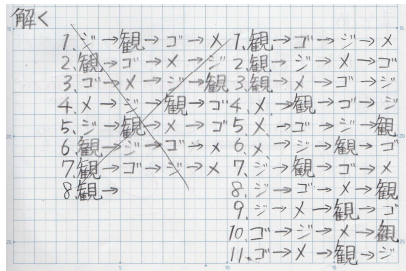 解く
1. ジ→観→ゴ→メ
2. 観→ゴ→メ→ジ
3. ゴ→メ→ジ→観
4. メ→ジ→観→ゴ
5. ジ→観→メ→ゴ
6. 観→ジ→ゴ→メ
7. 観→ゴ→ジ→メ
8. 観→
1. 観→ゴ→ジ→メ
2. 観→ジ→メ→ゴ
3. 観→メ→ゴ→ジ
4. メ→観→ゴ→ジ
5. メ→ゴ→ジ→観
6. メ→ジ→観→ゴ
7. ジ→観→ゴ→メ
8. ジ→ゴ→メ→観
9. ジ→メ→観→ゴ
10. ゴ→ジ→メ→観
11. ゴ→メ→観→ジ